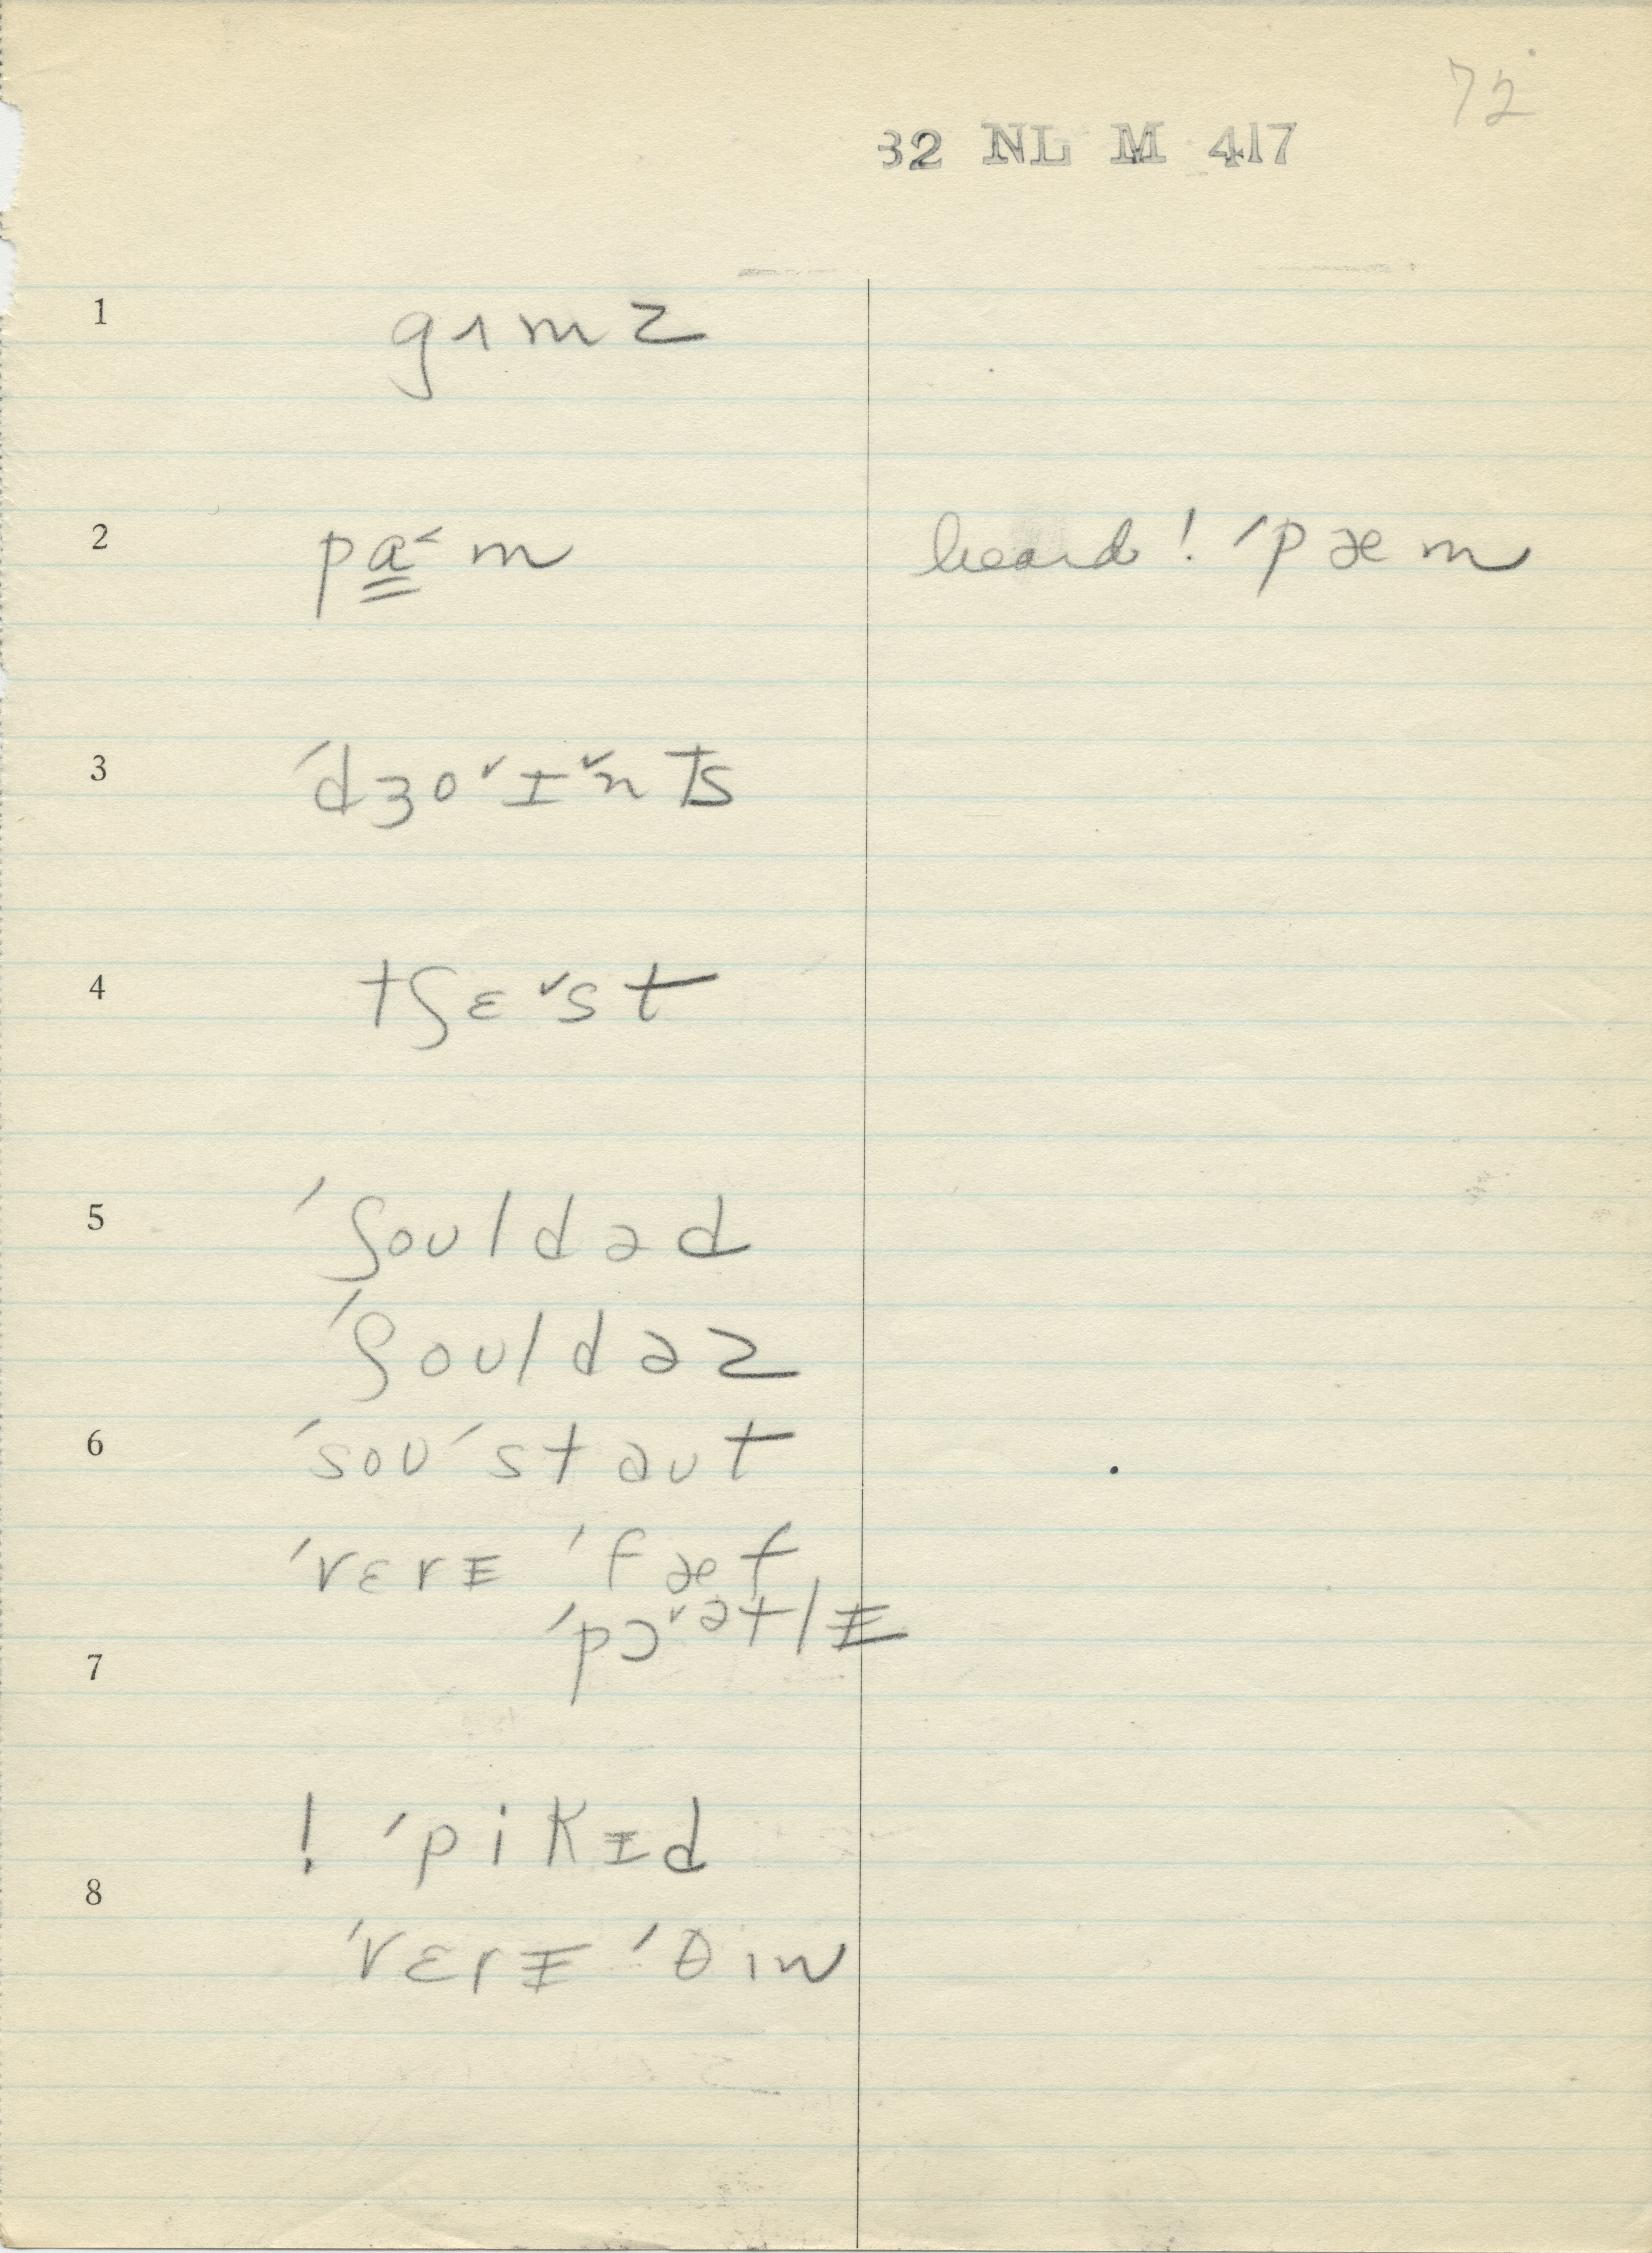 72
32 NL M 417
1 gɿmz
2 pa̳˂m heard ! ˊpæm
3 ˊdʒo˅ɪ˅nts
4 tʃɛ˅st
5 ˊʃouldəd
ˊʃouldəz
6 ˊsouˊstaut
ˊvɛrɪ ˊfæt
ˊpɔ˅ətlɪ
7
! ˊpikɪd
8
ˊvɛrɪ ˊθɪn